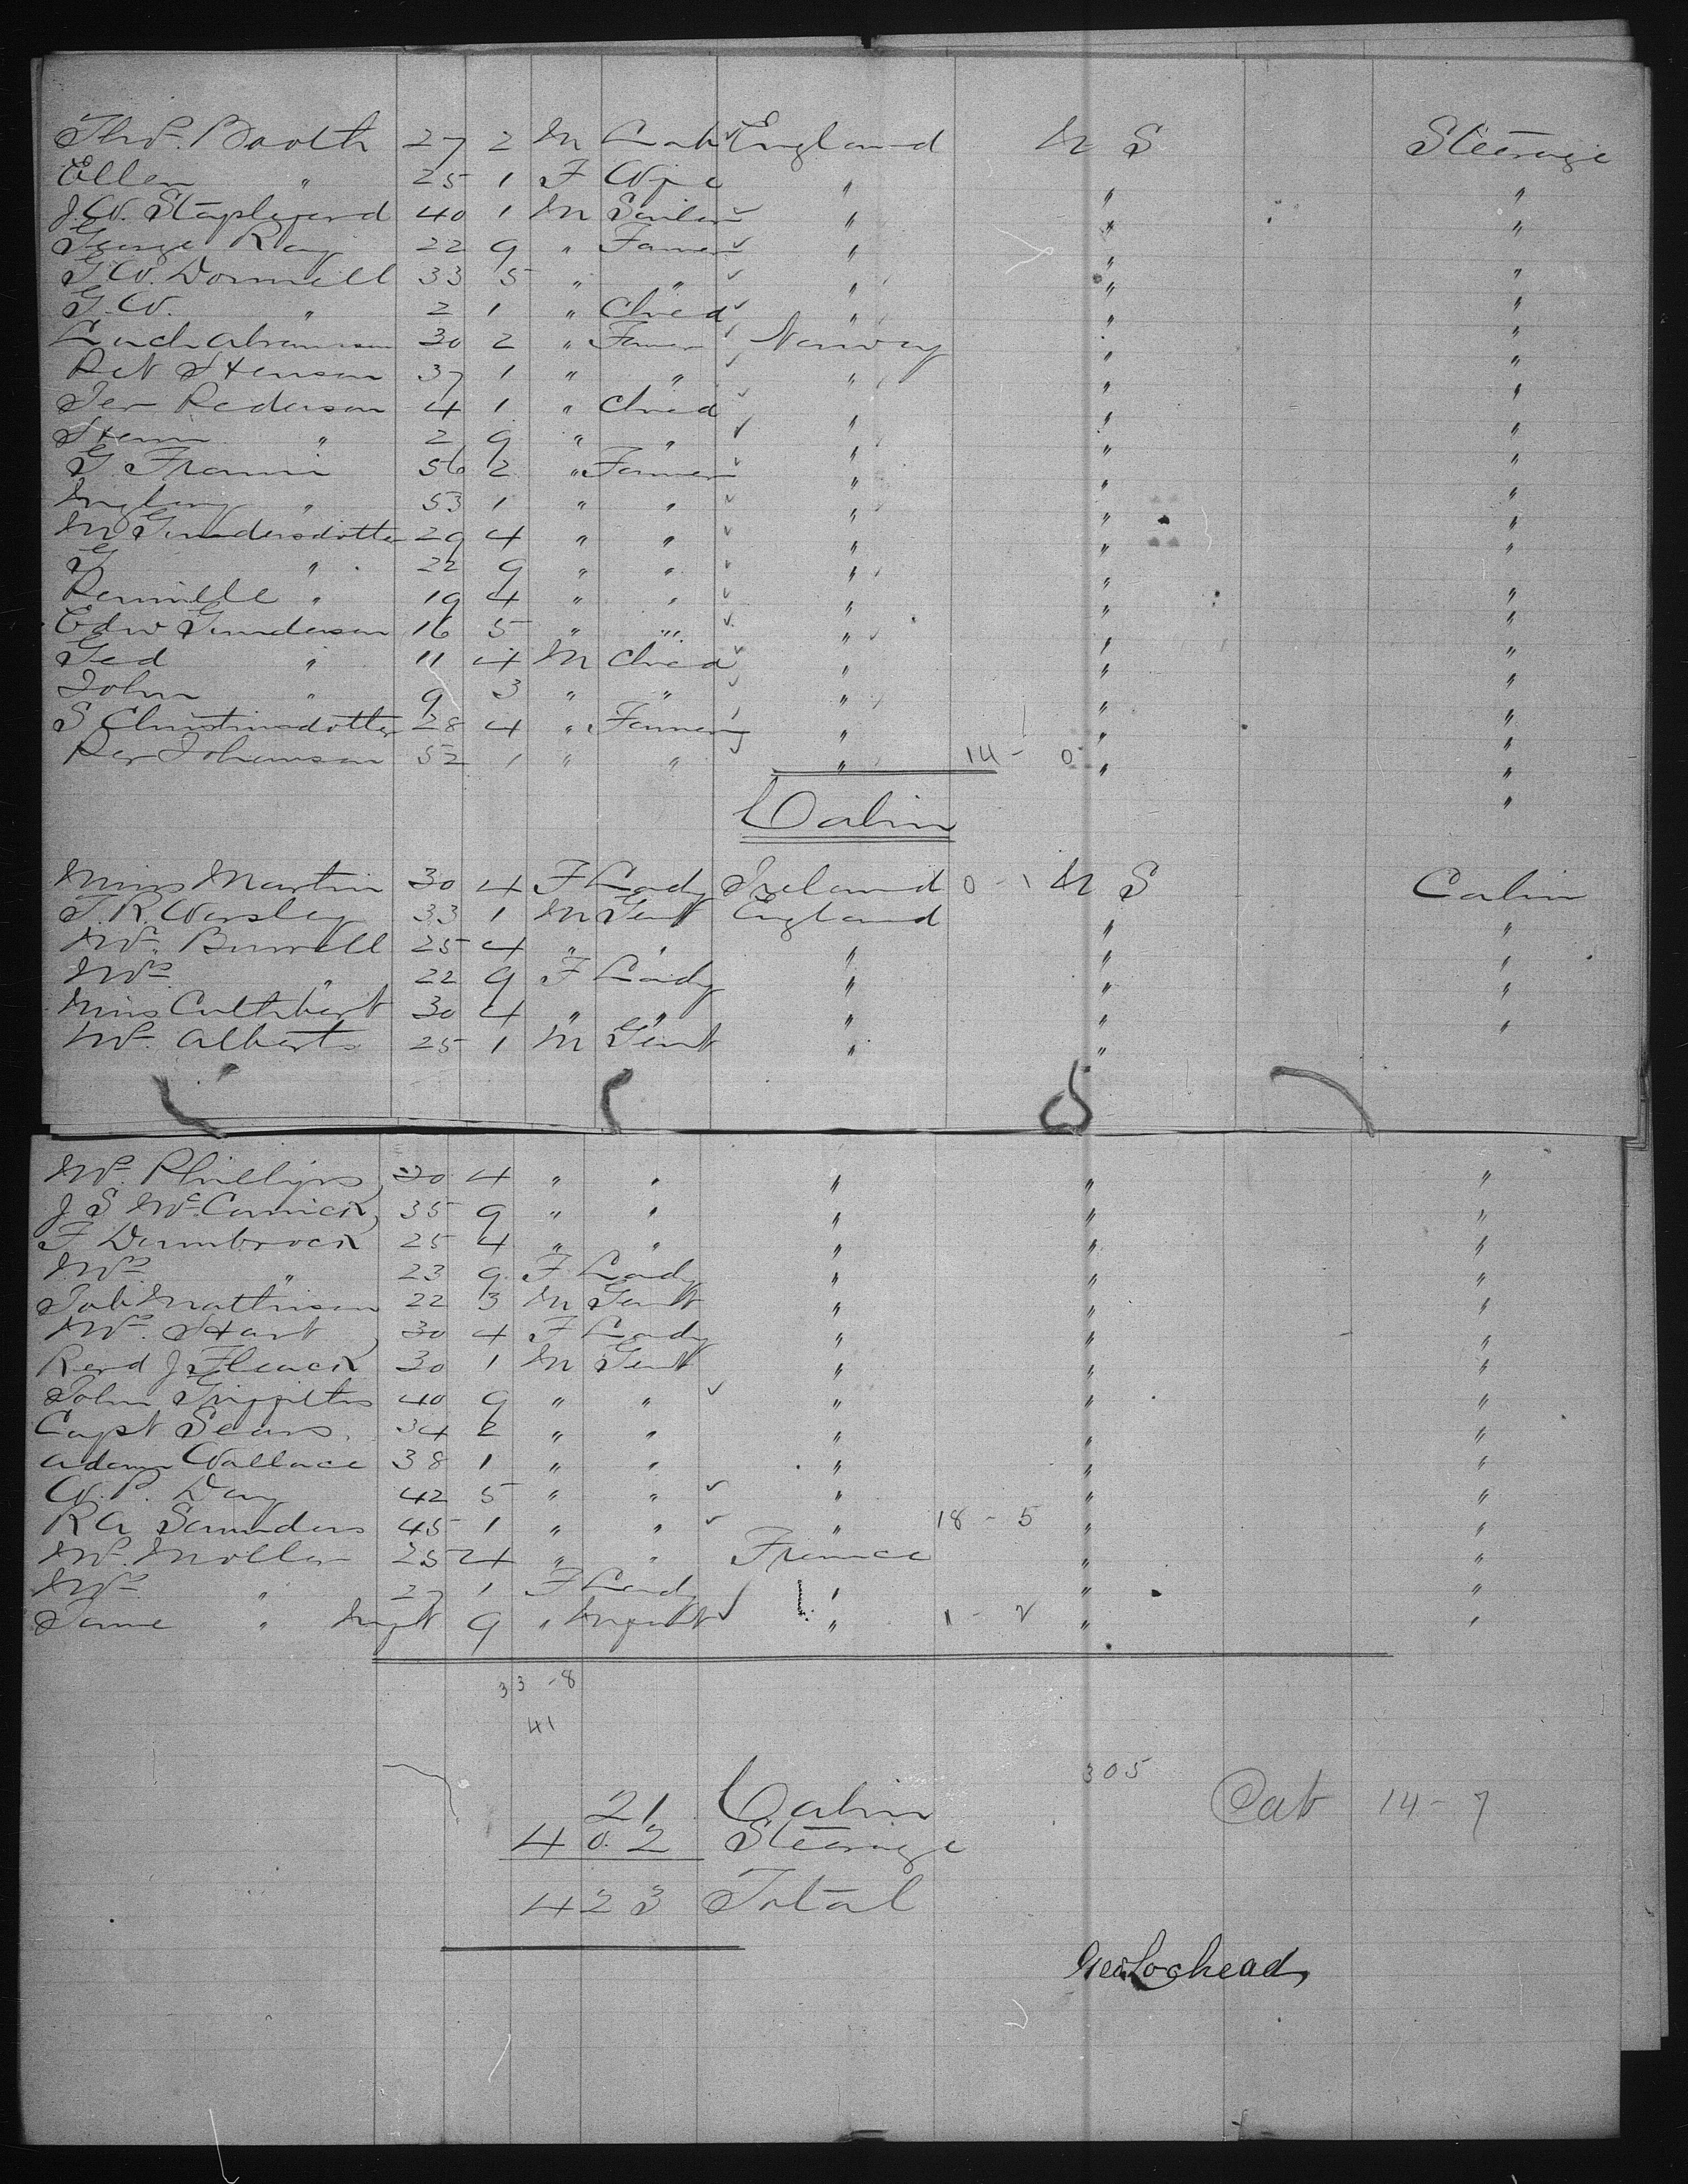 Thos. Booth 27 2 M Lab England U S Steerage
Ellen " 25 1 F Wife " " "
J.W. Stapleford 40 1 M Sailor " " "
George Ray 22 9 " Farmer " " "
G.W. Dormill 33 5 " " " " "
G.W. " 2 1 " Child " " "
30 2 " Farmer Norway " "
37 1 " " " " "
Per Pederson 4 1 " Child " " "
" 2 9 " " " " "
G. 56 2 " Farmer " " "
" 53 1 " " " " "
M Gundersdotter 29 4 " " " "
G " 22 9 " " " " "
" 19 4 " " " " "
Edw Gunderson 16 5 " " " " "
Ged " 11 4 M Child " " "
John " 9 3 " " " " "
S Christinsdotter 28 4 " Farmer " " "
Per Johanson 52 1 " " " 14 - 0 " "
Cabin
Miss Martin 30 4 F Lady Ireland 0 - 1 U S Cabin
T.R. Worsley 33 1 M Gent England " "
Mr. Burrell 25 4 " " " " "
Mrs " 22 9 F Lady " " "
Miss Cuthbert 30 4 " " " " "
Mr. Alberts 25 1 M Gent " "
Mr. Phillips 30 4 " " " " "
J S McCormick 35 9 " " " " "
F Dambrock 25 4 " " " " "
Mrs " 23 9 F Lady " " "
Mathison 22 3 M Gent " " "
Mrs. Hart 30 4 F Lady " " "
Revd J Fleack 30 1 M Gent " " "
John Griffiths 40 9 " " " " "
Capt Sears 34 2 " " " " "
Adam Wallace 38 1 " " " " "
W.P. Day 42 5 " " " " "
R A Saunders 45 1 " " " 18 - 5 " "
Mr. Moller 25 4 " " France " "
Mrs " 27 1 F Lady " " "
Jane " Inft 9 " Infant " 1 - 2 " "
33 - 8
41
305
21 Cabin Cab 14 - 7
402 Steerage
423 Total
Geo Lochead